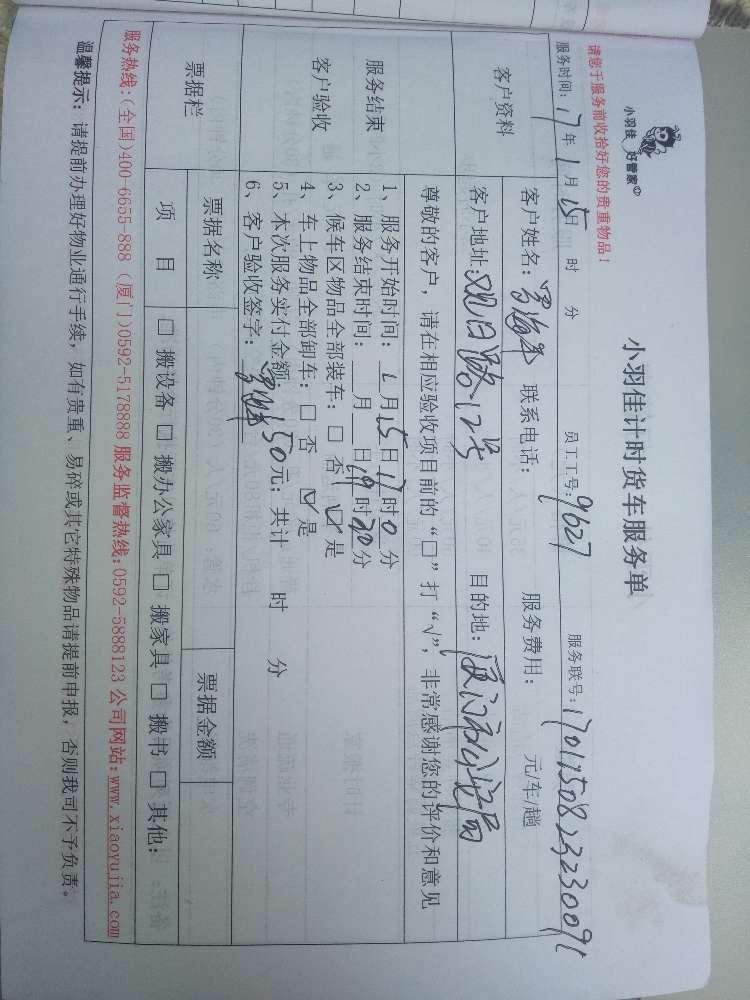 小羽佳 好管家
小羽佳计时货车服务单
请您于服务前收拾好您的贵重物品！
服务时间：17年1月15日 时 分 员工工号：9627 服务联号：170115082323091
客户资料
客户姓名： 联系电话： 服务费用： 元/车/趟
客户地址：观日路12号 目的地：厦门市公证局
服务结束
客户验收
尊敬的客户，请在相应验收项目前的“□”打“√”，非常感谢您的评价和意见
1、服务开始时间：1月15日17时0分
2、服务结束时间：__月__日19时20分
3、候车区物品全部装车：□ 否 ☑ 是
4、车上物品全部卸车：□ 否 ☑ 是
5、本次服务实付金额：150元；共计 时 分
6、客户验收签字：
票据栏
票据名称 票据金额
项 目 □ 搬设备 □ 搬办公家具 □ 搬家具 □ 搬书 □ 其他：
服务热线：(全国)400-6655-888 (厦门)0592-5178888 服务监督热线：0592-5888123 公司网站：www.xiaoyujia.com
温馨提示：请提前办理好物业通行手续，如有贵重、易碎或其它特殊物品请提前申报，否则我司不予负责。